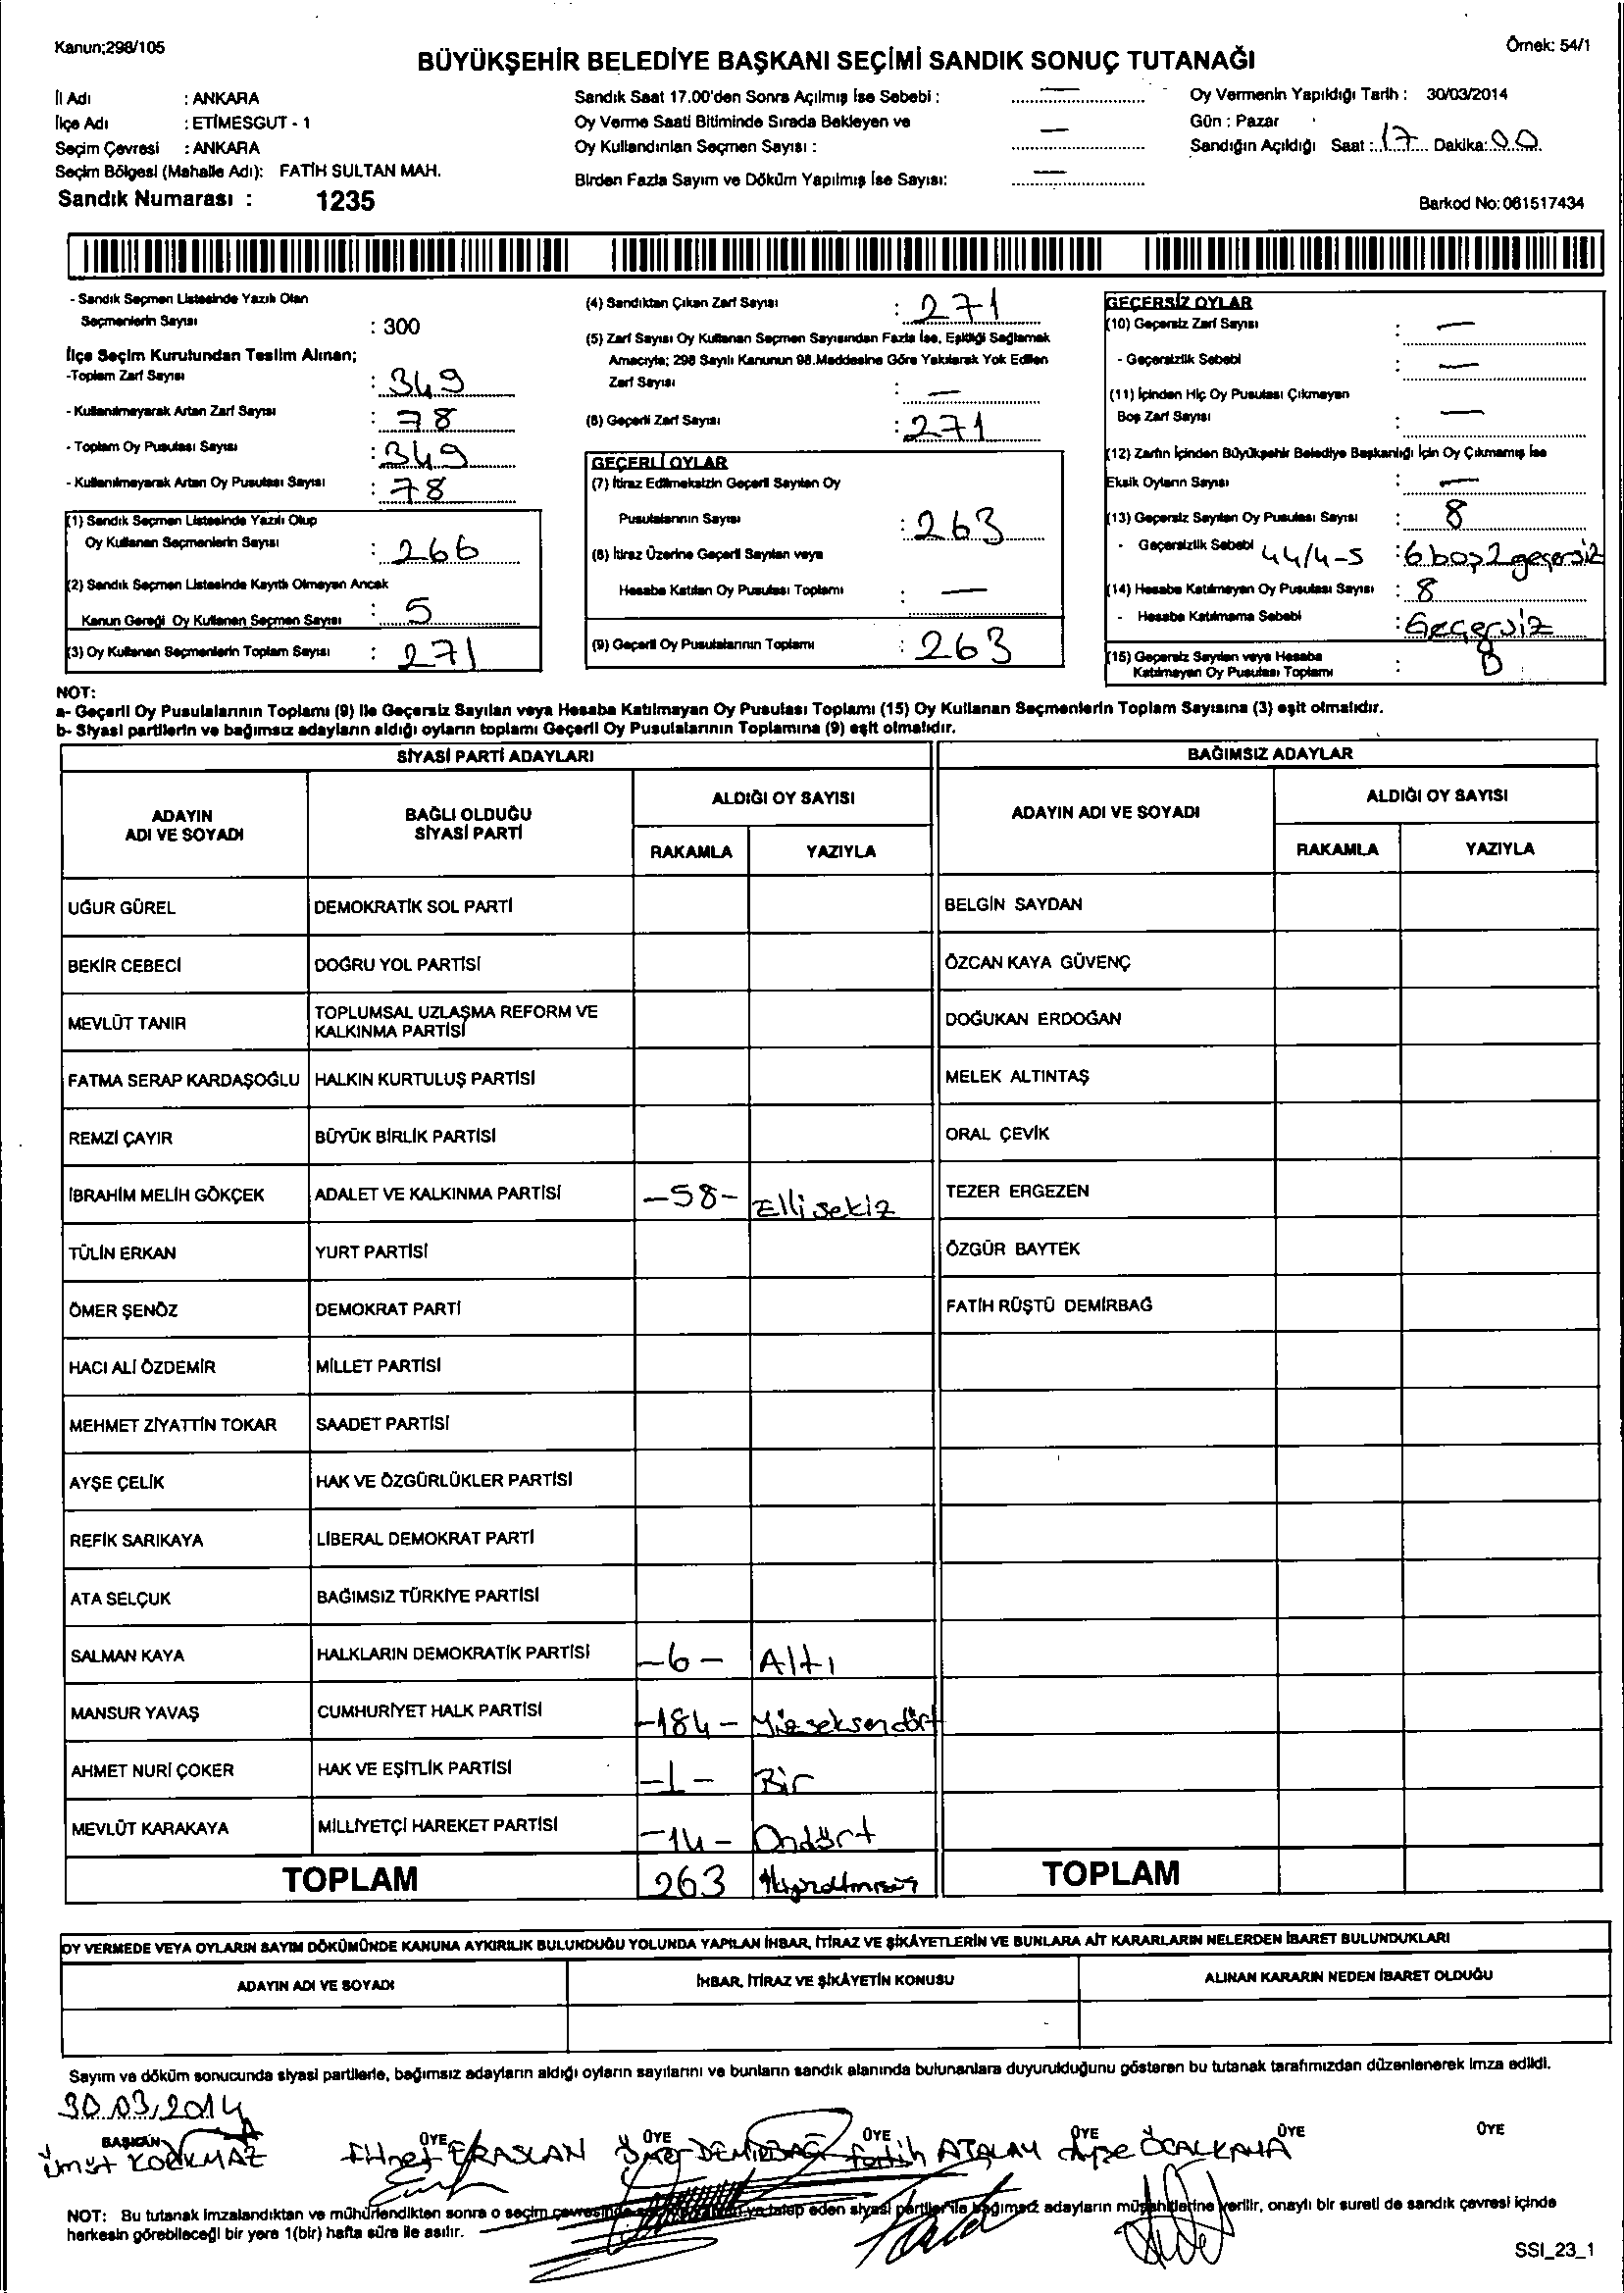 Kanun;298/105
Örnek: 54/1
BÜYÜKŞEHİR BELEDİYE BAŞKANI SEÇİMİ SANDIK SONUÇ TUTANAĞI
İl Adı : ANKARA
İlçe Adı : ETİMESGUT - 1
Seçim Çevresi : ANKARA
Seçim Bölgesi (Mahalle Adı): FATİH SULTAN MAH.
Sandık Numarası : 1235
Sandık Saat 17.00'den Sonra Açılmış İse Sebebi : —
Oy Verme Saati Bitiminde Sırada Bekleyen ve
Oy Kullandırılan Seçmen Sayısı : —
Birden Fazla Sayım ve Döküm Yapılmış İse Sayısı: —
Oy Vermenin Yapıldığı Tarih : 30/03/2014
Gün : Pazar
Sandığın Açıldığı Saat : 17 Dakika: 00
Barkod No: 061517434
- Sandık Seçmen Listesinde Yazılı Olan
Seçmenlerin Sayısı : 300
İlçe Seçim Kurulundan Teslim Alınan;
-Toplam Zarf Sayısı : 349
- Kullanılmayarak Artan Zarf Sayısı : 78
- Toplam Oy Pusulası Sayısı : 349
- Kullanılmayarak Artan Oy Pusulası Sayısı : 78
(1) Sandık Seçmen Listesinde Yazılı Olup
Oy Kullanan Seçmenlerin Sayısı : 266
(2) Sandık Seçmen Listesinde Kayıtlı Olmayan Ancak
Kanun Gereği Oy Kullanan Seçmen Sayısı : 5
(3) Oy Kullanan Seçmenlerin Toplam Sayısı : 271
(4) Sandıktan Çıkan Zarf Sayısı : 271
(5) Zarf Sayısı Oy Kullanan Seçmen Sayısından Fazla İse, Eşitliği Sağlamak
Amacıyla; 298 Sayılı Kanunun 98.Maddesine Göre Yakılarak Yok Edilen
Zarf Sayısı : —
(6) Geçerli Zarf Sayısı : 271
GEÇERLİ OYLAR
(7) İtiraz Edilmeksizin Geçerli Sayılan Oy
Pusulalarının Sayısı : 263
(8) İtiraz Üzerine Geçerli Sayılan veya
Hesaba Katılan Oy Pusulası Toplamı : —
(9) Geçerli Oy Pusulalarının Toplamı : 263
GEÇERSİZ OYLAR
(10) Geçersiz Zarf Sayısı : —
- Geçersizlik Sebebi : —
(11) İçinden Hiç Oy Pusulası Çıkmayan
Boş Zarf Sayısı : —
(12) Zarfın İçinden Büyükşehir Belediye Başkanlığı İçin Oy Çıkmamış İse
Eksik Oyların Sayısı : —
(13) Geçersiz Sayılan Oy Pusulası Sayısı : 8
- Geçersizlik Sebebi 44/4-5 : 6 boş 2 geçersiz
(14) Hesaba Katılmayan Oy Pusulası Sayısı : 8
- Hesaba Katılmama Sebebi : Geçersiz
(15) Geçersiz Sayılan veya Hesaba
Katılmayan Oy Pusulası Toplamı : 8
NOT:
a- Geçerli Oy Pusulalarının Toplamı (9) ile Geçersiz Sayılan veya Hesaba Katılmayan Oy Pusulası Toplamı (15) Oy Kullanan Seçmenlerin Toplam Sayısına (3) eşit olmalıdır.
b- Siyasi partilerin ve bağımsız adayların aldığı oyların toplamı Geçerli Oy Pusulalarının Toplamına (9) eşit olmalıdır.
SİYASİ PARTİ ADAYLARI BAĞIMSIZ ADAYLAR
ADAYIN ADI VE SOYADI BAĞLI OLDUĞU SİYASİ PARTİ ALDIĞI OY SAYISI ADAYIN ADI VE SOYADI ALDIĞI OY SAYISI
RAKAMLA YAZIYLA RAKAMLA YAZIYLA
UĞUR GÜREL DEMOKRATİK SOL PARTİ BELGİN SAYDAN
BEKİR CEBECİ DOĞRU YOL PARTİSİ ÖZCAN KAYA GÜVENÇ
MEVLÜT TANIR TOPLUMSAL UZLAŞMA REFORM VE KALKINMA PARTİSİ DOĞUKAN ERDOĞAN
FATMA SERAP KARDAŞOĞLU HALKIN KURTULUŞ PARTİSİ MELEK ALTINTAŞ
REMZİ ÇAYIR BÜYÜK BİRLİK PARTİSİ ORAL ÇEVİK
İBRAHİM MELİH GÖKÇEK ADALET VE KALKINMA PARTİSİ -58- Elli sekiz TEZER ERGEZEN
TÜLİN ERKAN YURT PARTİSİ ÖZGÜR BAYTEK
ÖMER ŞENÖZ DEMOKRAT PARTİ FATİH RÜŞTÜ DEMİRBAĞ
HACI ALİ ÖZDEMİR MİLLET PARTİSİ
MEHMET ZİYATTİN TOKAR SAADET PARTİSİ
AYŞE ÇELİK HAK VE ÖZGÜRLÜKLER PARTİSİ
REFİK SARIKAYA LİBERAL DEMOKRAT PARTİ
ATA SELÇUK BAĞIMSIZ TÜRKİYE PARTİSİ
SALMAN KAYA HALKLARIN DEMOKRATİK PARTİSİ -6- Altı
MANSUR YAVAŞ CUMHURİYET HALK PARTİSİ -184- Yüzseksendört
AHMET NURİ ÇOKER HAK VE EŞİTLİK PARTİSİ -1- Bir
MEVLÜT KARAKAYA MİLLİYETÇİ HAREKET PARTİSİ -14- Ondört
TOPLAM 263 TOPLAM
OY VERMEDE VEYA OYLARIN SAYIM DÖKÜMÜNDE KANUNA AYKIRILIK BULUNDUĞU YOLUNDA YAPILAN İHBAR, İTİRAZ VE ŞİKÂYETLERİN VE BUNLARA AİT KARARLARIN NELERDEN İBARET BULUNDUKLARI
ADAYIN ADI VE SOYADI İHBAR, İTİRAZ VE ŞİKÂYETİN KONUSU ALINAN KARARIN NEDEN İBARET OLDUĞU
Sayım ve döküm sonucunda siyasi partilerle, bağımsız adayların aldığı oyların sayılarını ve bunların sandık alanında bulunanlara duyurulduğunu gösteren bu tutanak tarafımızdan düzenlenerek imza edildi.
30.03.2014
BAŞKAN ÜYE ÜYE ÜYE ÜYE ÜYE ÜYE
Ümüt KORKMAZ ERASLAN Ömer DEMİRBAĞ Fatih ATALAY Ayşe ÖCALKAYA
NOT: Bu tutanak imzalandıktan ve mühürlendikten sonra o seçim çevresinde ve talep eden siyasi partiler ile bağımsız adayların müşahitlerine verilir, onaylı bir sureti de sandık çevresi içinde
herkesin görebileceği bir yere 1(bir) hafta süre ile asılır.
SSI_23_1